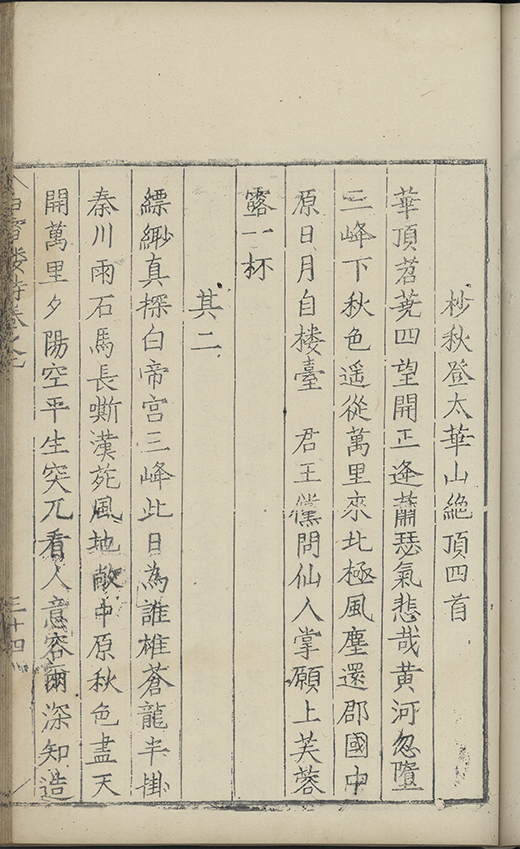 杪秋登太華山絶頂四首
華頂苕蕘四望開正逢蕭瑟氣悲哉黄河忽墮
三峰下秋色遥從萬里來北極風塵還郡國中
原日月自楼臺 君王儻問仙人掌願上芙蓉
露一杯
其二
縹緲真探白帝宮三峰此日為誰雄蒼龍半掛
秦川雨石馬長嘶漢苑風地敞中原秋色盡天
開萬里夕陽空平生突兀看人意容爾深知造
白雪楼詩卷之
三十四